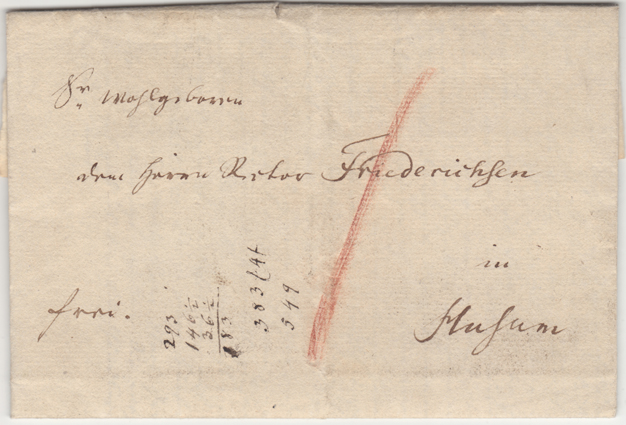 Sr. Wohlgeboren
dem Herrn Rector Friederichsen
in
Husum
frei.
293
146½
36½
183
383
549